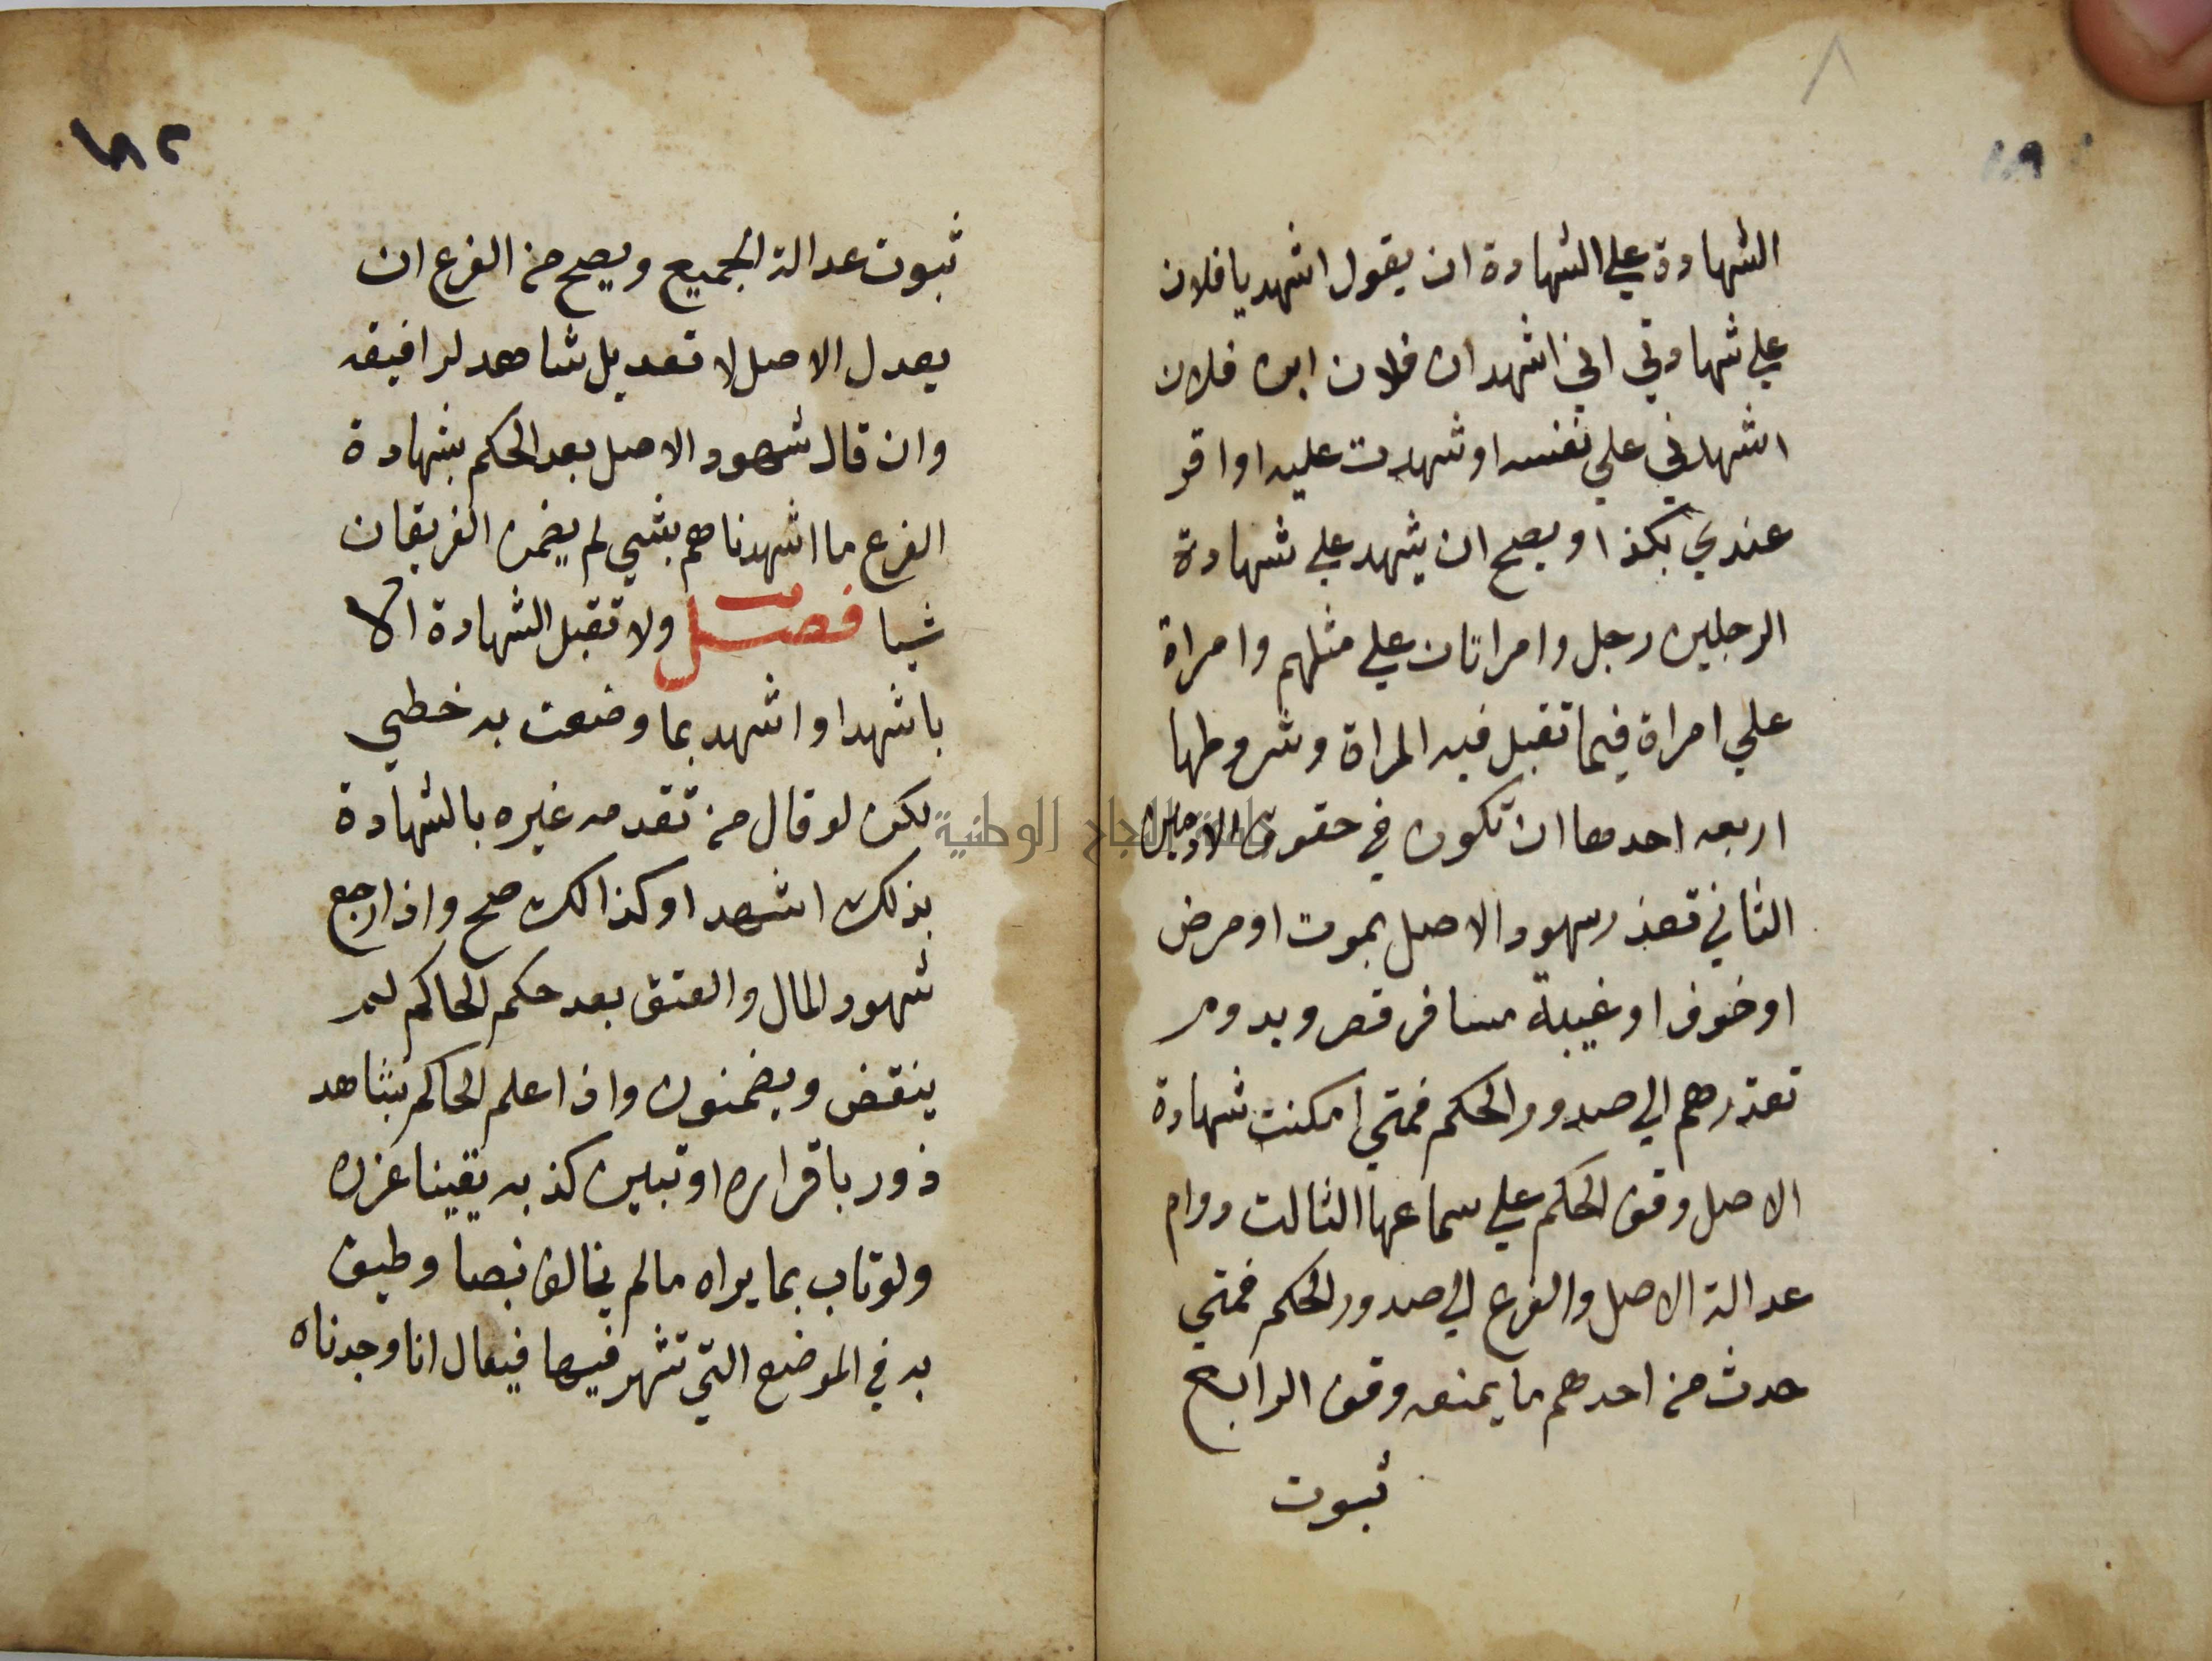 الشهادة علي الشهادة ان يقول اشهد يا فلان
علي شهادتي اني اشهد ان فلان ابن فلان
اشهدني علي نفسه او شهدت عليه او اقر
عندي بكذا ويصح ان يشهد علي شهادة
الرجلين رجل وامراتان علي مثلهم وامراة
علي امراة فيما تقبل فيه المراة وشروطها
اربعه احدها ان تكون في حقوق الادميين
الثاني تعذر سهود الاصل بموت او مرض
او خوف او غيبة مسافر قصر ويدوم
تعذرهم الي صدور الحكم فمتي امكنت شهادة
الاصل وقف الحكم علي سماعها الثالث دوام
عدالة الاصل والفرع الي صدور الحكم فمتي
حدث من احدهم ما يمنعه وقف الرابع
ثبوت
ثبوت عدالة الجميع ويصح من الفرع ان
يعدل الاصل لا تعديل شاهد لرافيقه
وان قال شهود الاصل بعد الحكم بشهادة
الفرع ما اشهدناهم بشي لم يضمن الفريقان
شيا فصل ولا تقبل الشهادة الا
باشهد او اشهد بما وضعت به خطي
لكن لو قال من تقدمه غيره بالشهادة
بذلك اشهد او كذالك صح واذا رجع
شهود المال والعتق بعد حكم الحاكم لم
ينقض ويضمنون واذا علم الحاكم بشاهد
زور باقراره او تبين كذبه يقينا عزره
ولو تاب بما يراه مالم يخالف نصا وطيف
به في المواضع التي تشهر فيها فيقال انا وجدناه
جامعة النجاح الوطنية